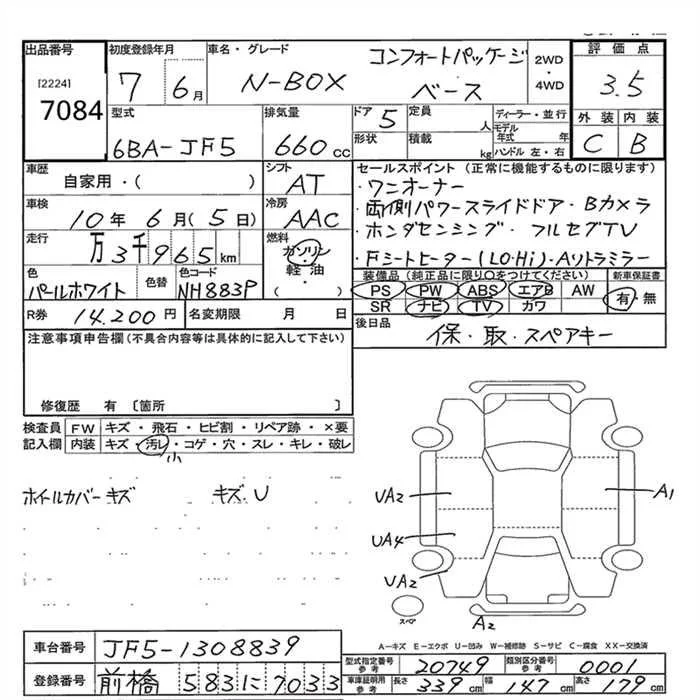 出品番号 初度登録年月 車名・グレード 評価点
[2224] 7 6月 N-BOX コンフォートパッケージ ベース 2WD・4WD 3.5
7084
型式 排気量 ドア 5 定員 人 ディーラー・並行 外装 内装
6BA-JF5 660cc 形状 積載 kg モデル年式 年 ハンドル 左・右 C B
車歴 シフト セールスポイント(正常に機能するものに限ります)
自家用・( ) AT ・ワンオーナー
車検 冷房 ・両側パワースライドドア・Bカメラ
10年 6月(5日) AAC ・ホンダセンシング・フルセグTV
走行 燃料
万3千965km ガソリン・軽油・( ) ・Fシートヒーター(LO・Hi)・Aソトラミラー
色 色替 色コード 装備品(純正品に限り○をつけてください) 新車保証書
パールホワイト NH883P PS PW ABS エアB AW 有・無
R券 14,200円 名変期限 月 日 SR ナビ TV カワ
後日品 保・取・スペアキー
注意事項申告欄(不具合内容等は具体的に記入して下さい)
修復歴 有〔箇所 〕
検査員 FW キズ・飛石・ヒビ割・リペア跡・×要
記入欄 内装 キズ・汚レ・コゲ・穴・スレ・キレ・破レ
小
ホイルカバーキズ キズ、U
UA2 A1
UA4
UA2
スペア A2
A-キズ E-エクボ U-凹み W-補修跡 S-サビ C-腐食 XX-交換済
車台番号 JF5-1308839
型式指定番号 参考 20749 類別区分番号 参考 0001
登録番号 前橋 583に7033
車庫証明用 参考 長さ 339cm 幅 147cm 高さ 179cm